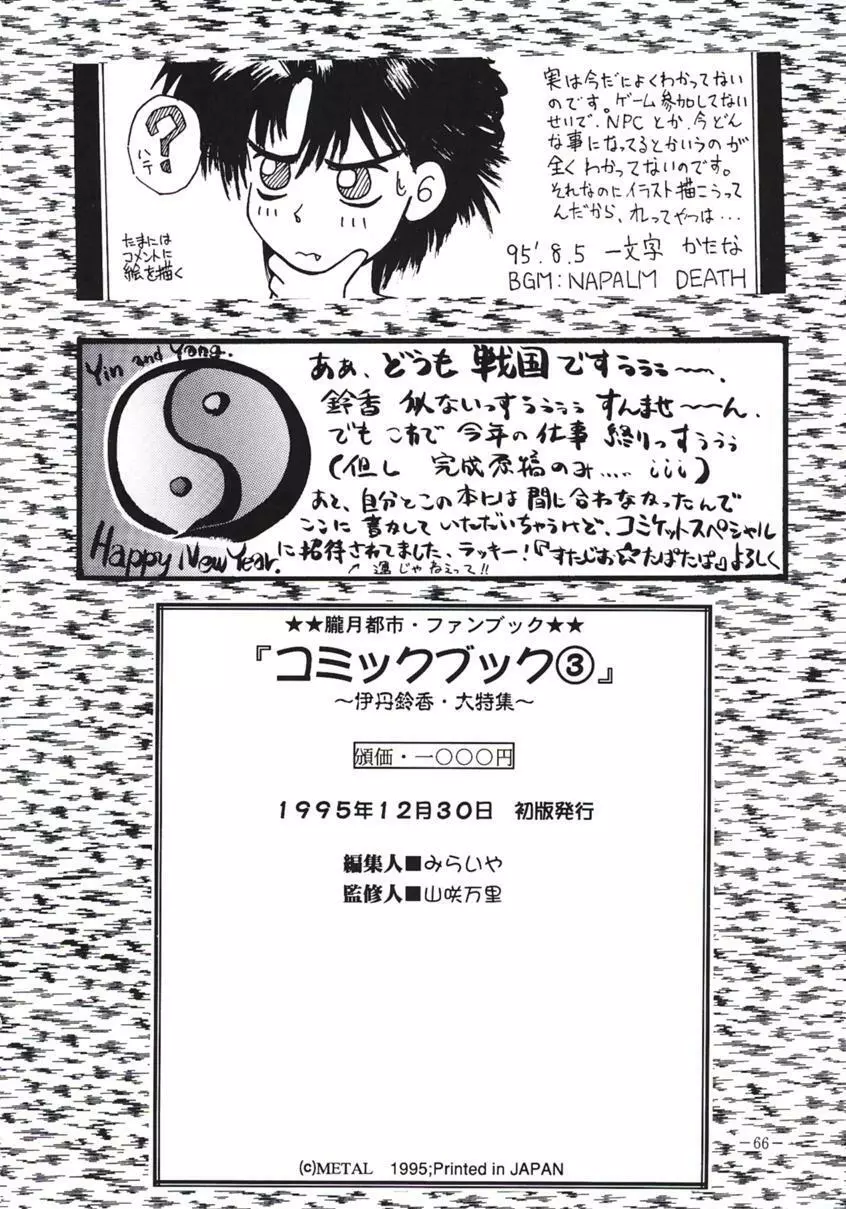 実は今だによくわかってない
のです。ゲーム参加してない
せいで、NPCとか、今どん
な事になってるとかいうのが
全くわかってないのです。
それなのにイラスト描こうって
んだから、れってやつは…
95'.8.5 一文字 かたな
BGM:NAPALM DEATH
?
ハテ
たまには
コメントに
絵を描く
Yin and Yang.
Happy New Year.
ああ、どうも 戦国 ですぅぅぅ〜〜、
鈴香 似ないっすぅぅぅぅ すんませ〜〜ん、
でも これで 今年の仕事 終りっすぅぅぅ
(但し 完成原稿のみ…..¡¡¡)
あと、自分とこの本には間に合わなかったんで
ここに書かして いただいちゃうけど、コミケットスペシャル
に招待されてました、ラッキー!『すたじお☆たぱたぱ』よろしく
↗選じゃねえって!!
★★朧月都市・ファンブック★★
『コミックブック③』
〜伊丹鈴香・大特集〜
頒価・一〇〇〇円
1995年12月30日 初版発行
編集人■みらいや
監修人■山咲万里
(c)METAL 1995;Printed in JAPAN
－66－